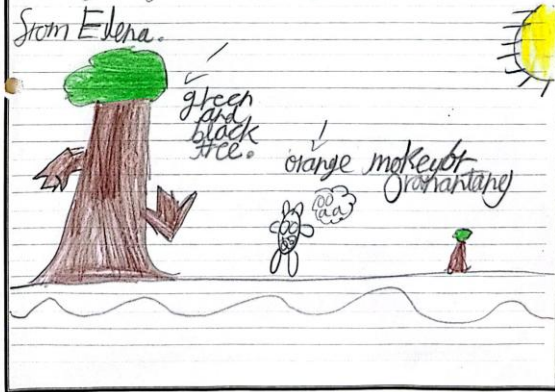 from Elena.
green
and
black
tree.
orange mokeybr
Oranantang
oo
aa